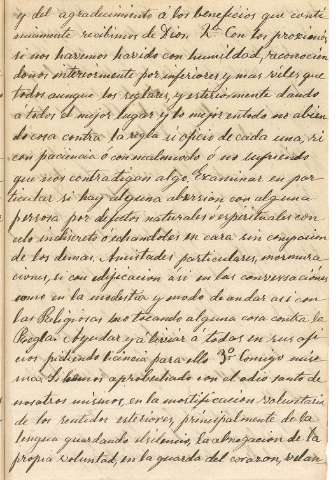 y del agradecimiento á los beneficios que conti
nuamente recibimos de Dios. 2ª Con los proximos
si nos havemos havido con humildad, reconocien
donos interiormente por inferiores y mas viles que
todos aunque los seglares, y esteriormente dando
á todos el mejor lugar y lo mejor en todo no abien
do cosa contra la regla ú oficio de cada una, si
con paciencia ó con mal modo ó no supriendo
que nos contradigan algo. Examinar en par
ticular si hay alguna abersion con alguna
persona por defectos naturales o espirituales con
celo indiscreto o echandoles en cara sin compacion
de los demas. Amistades particulares, mormura
ciones, si con edificacion asi en las conversaciones
como en la modestia y modo de andar asi con
las Religiosas no tocando alguna cosa contra la
Regla: Ayudar y aliviar á todas en sus ofi
cios pidiendo licencia para ello 3º Consigo mis
ma. Si hemos aprobechado con el odio santo de
nosotros mismos, en la mortificacion voluntaria
de los sentidos esteriores, principalmente de la
lengua guardando silencio, la abnegacion de la
propia voluntad, en la guarda del corazon, velan